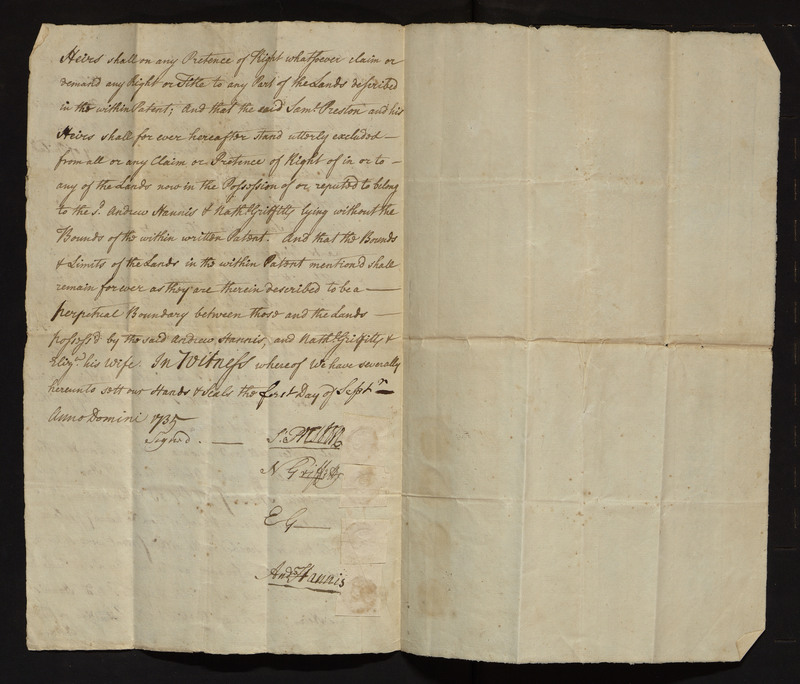 Heirs shall on any Pretence of Right whatsoever claim or
demand any Right or Title to any Part of the Lands described
in the within Patent; And that the said Saml. Preston and his
Heirs shall for ever hereafter stand utterly excluded —
from all or any Claim or Pretence of Right of in or to —
any of the Lands now in the Possession of or reputed to belong
to the sd. Andrew Hannis & Nathl. Griffitts lying without the
Bounds of the within written Patent. And that the Bounds
& Limits of the Lands in the within Patent mention'd shall
remain for ever as they are therein described to be a —
perpetual Boundary between those and the Lands —
possess'd by the said Andrew Hannis, and Nathl. Griffitts &
his Wife. In Witness whereof We have severally
hereunto sett our Hands & Seals the first Day of Septr. —
Anno Domini 1735
Signed. —
N Griffitts
E G —
Andw Hannis